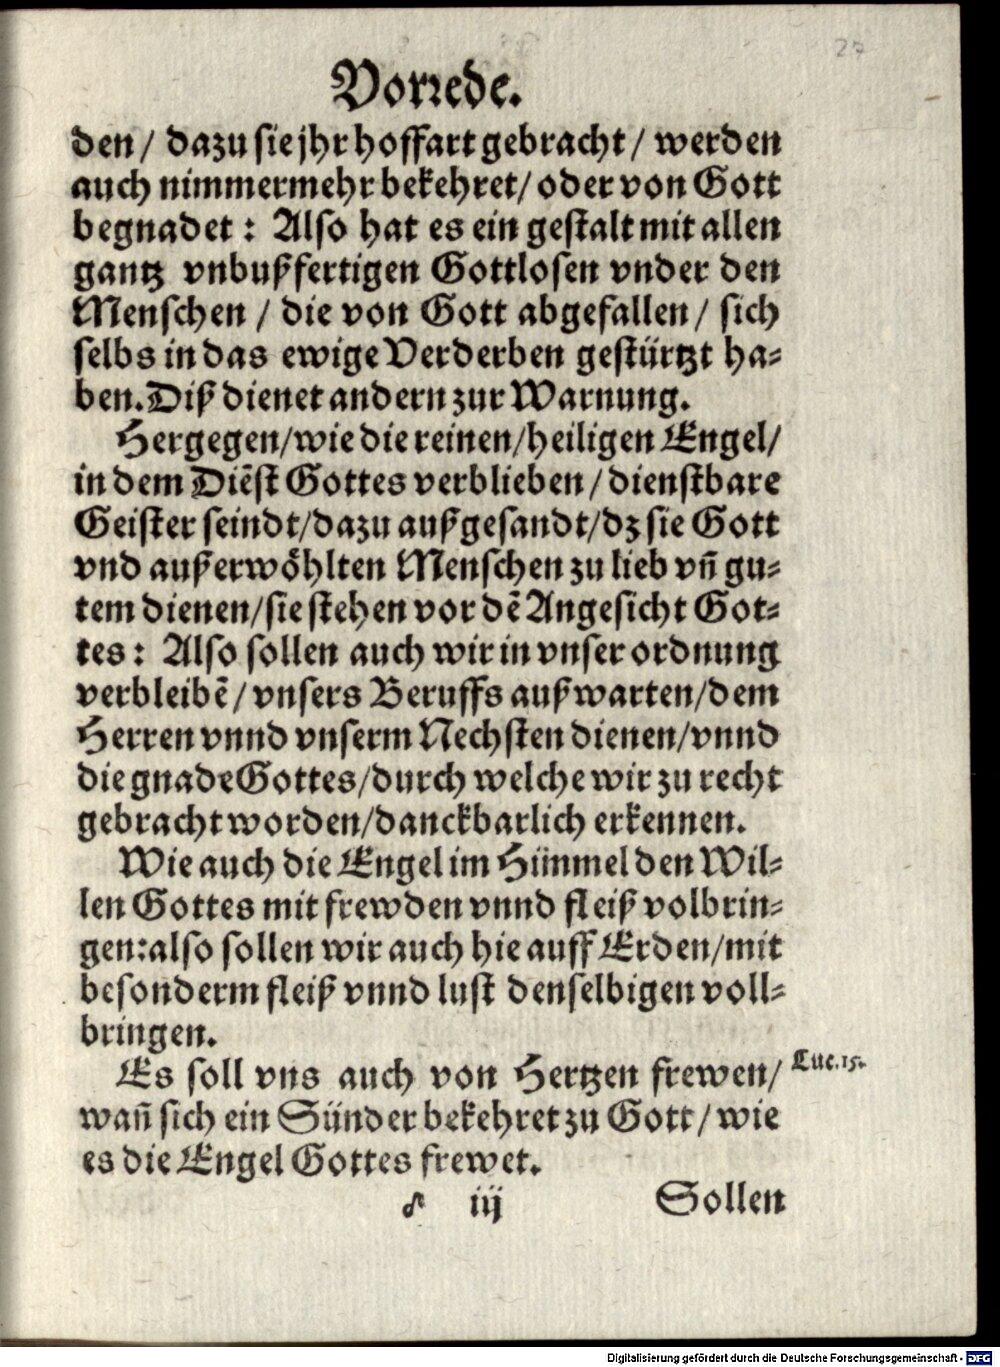 27
Vorrede.
den / dazu sie jhr hoffart gebracht / werden
auch nimmermehr bekehret / oder von Gott
begnadet : Also hat es ein gestalt mit allen
gantz vnbußfertigen Gottlosen vnder den
Menschen / die von Gott abgefallen / sich
selbs in das ewige Verderben gestürtzt ha=
ben. Diß dienet andern zur Warnung.
Hergegen / wie die reinen / heiligen Engel /
in dem Diēst Gottes verblieben / dienstbare
Geister seindt / dazu außgesandt / dz sie Gott
vnd außerwöhlten Menschen zu lieb vn̄ gu=
tem dienen / sie stehen vor dē Angesicht Got=
tes : Also sollen auch wir in vnser ordnung
verbleibē / vnsers Beruffs außwarten / dem
Herren vnnd vnserm Nechsten dienen / vnnd
die gnade Gottes / durch welche wir zu recht
gebracht worden / danckbarlich erkennen.
Wie auch die Engel im Hümmel den Wil=
len Gottes mit frewden vnnd fleiß volbrin=
gen: also sollen wir auch hie auff Erden / mit
besonderm fleiß vnnd lust denselbigen voll=
bringen.
Es soll vns auch von Hertzen frewen /
Luc.15.
wan̄ sich ein Sünder bekehret zu Gott / wie
es die Engel Gottes frewet.
iij Sollen
Digitalisierung gefördert durch die Deutsche Forschungsgemeinschaft - DFG